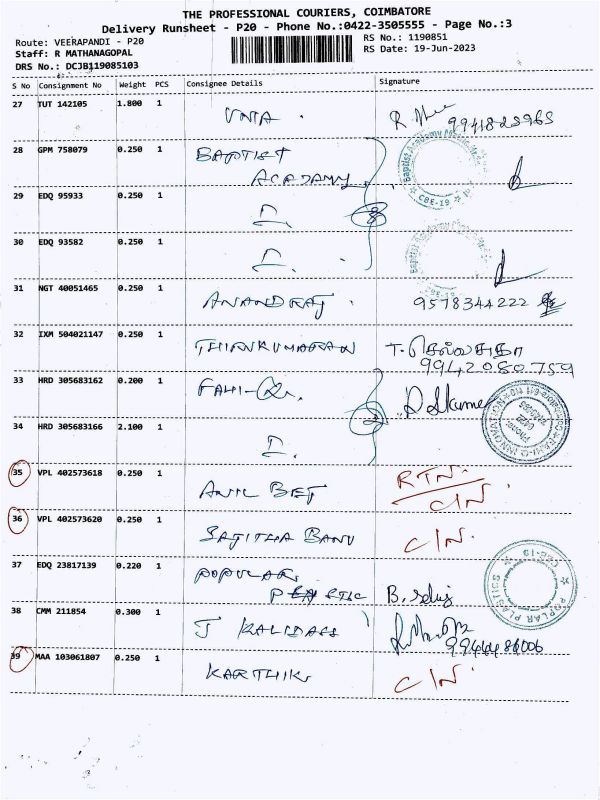 THE PROFESSIONAL COURIERS, COIMBATORE
Delivery Runsheet - P20 - Phone No.:0422-3505555 - Page No.:3
Route: VEERAPANDI - P20
RS No.: 1190851
Staff: R MATHANAGOPAL
RS Date: 19-Jun-2023
DRS No.: DCJB119085103
S No Consignment No Weight PCS Consignee Details Signature
27 TUT 142105 1.800 1
28 GPM 758079 0.250 1 BAPTIST
ACADAMY
29 EDQ 95933 0.250 1
30 EDQ 93582 0.250 1
31 NGT 40051465 0.250 1 ANANDRAJ 9578344222
32 IXM 504021147 0.250 1 THIRUKUMARAN T. செல்வசுதா
9942080759
33 HRD 305683162 0.200 1
34 HRD 305683166 2.100 1
35 VPL 402573618 0.250 1 RTN.
C/N.
36 VPL 402573620 0.250 1 SAJITHA BANU C/N.
37 EDQ 23817139 0.220 1 POPULAR
38 CMM 211854 0.300 1 J KALIDASS
9944486006
39 MAA 103061807 0.250 1 KARTHIK C/N.
POPLAR PLASTICS